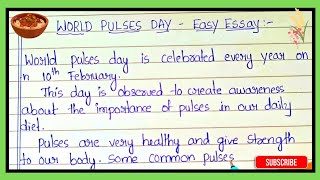 WORLD PULSES DAY - Easy Essay:-
World pulses day is celebrated every year on
n 10th February.
This day is observed to create awareness
about the importance of pulses in our daily
diet.
Pulses are very healthy and give strength
to our body. some common pulses
SUBSCRIBE